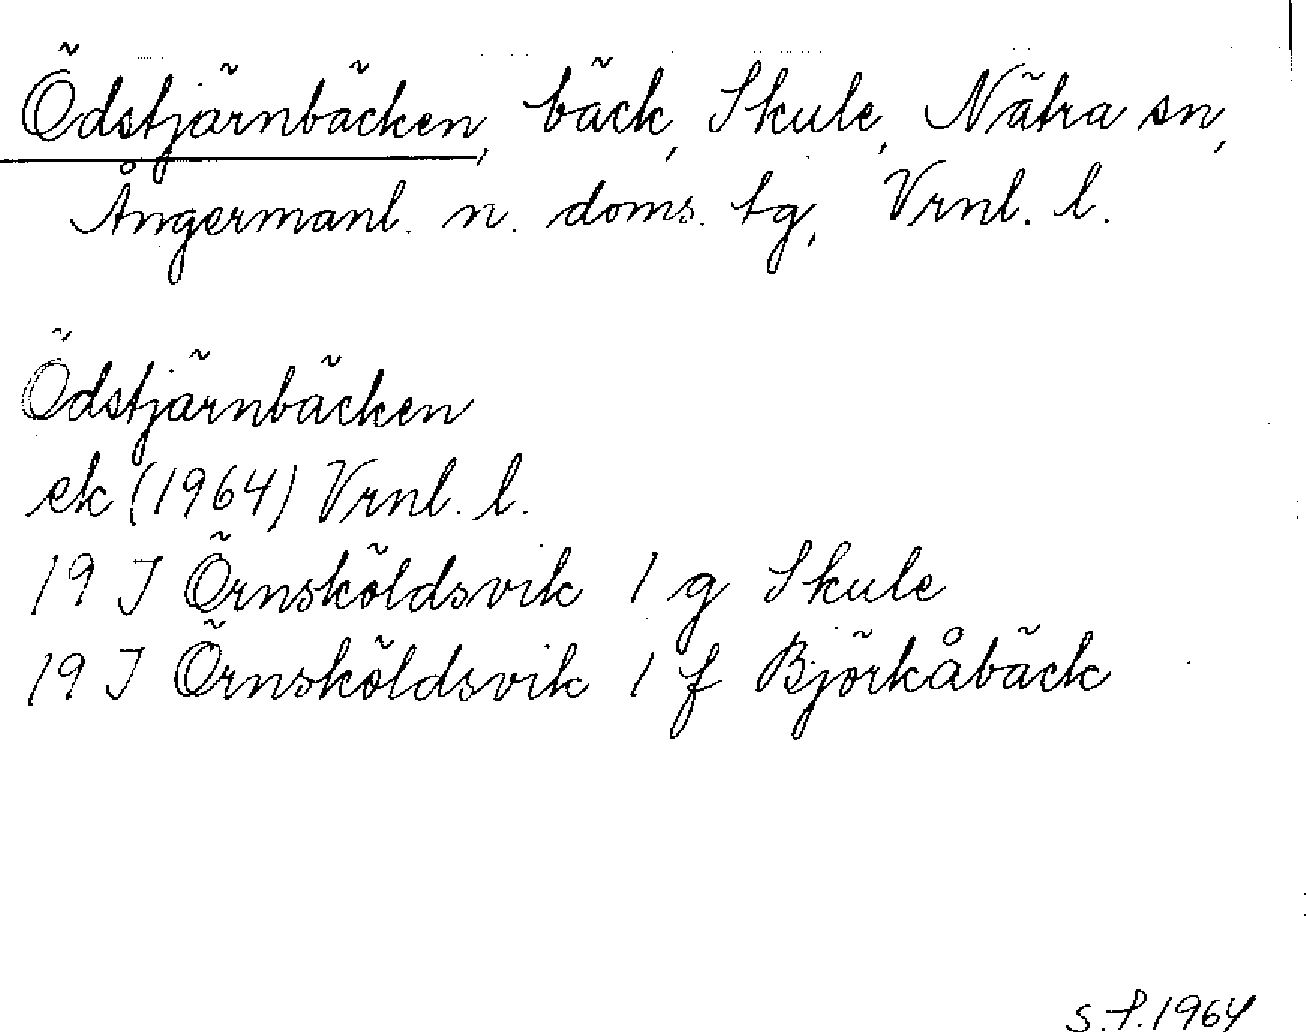 Ödstjärnbäcken, bäck, Skule, Nätra sn,
Ångermanl. n. doms. tg, Vrnl. l.
Ödstjärnbäcken
ek (1964) Vrnl. l.
19 J Örnsköldsvik 1 g Skule
19 J Örnsköldsvik 1 f Björkåbäck
S.F. 1964